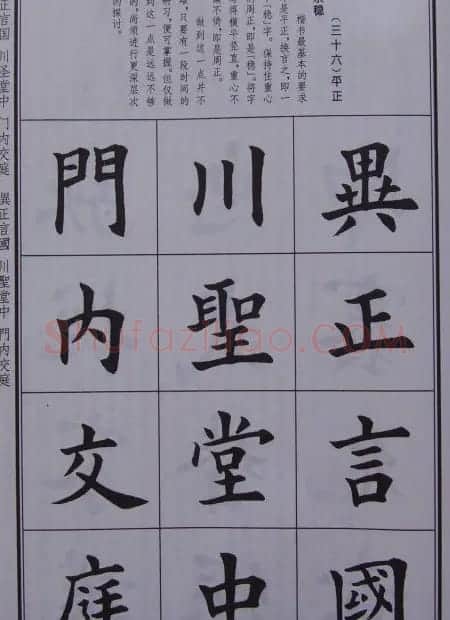 （三十六）平正
稳
楷书最基本的要求
是平正，换言之，即一
「稳」字。保持住重心
的周正，即是「稳」。将字
写得横平竖直，重心不
偏不倚，即是周正。
做到这一点并不
难，只要有一段时间的
练习，便可掌握。但仅做
到这一点是远远不够
的，尚须进行更深层次
的探讨。
異正言國
川聖堂中
門内交庭
正言国 川圣堂中 门内交庭 異正言國 川聖堂中 門内交庭
Shufaziliao.COM